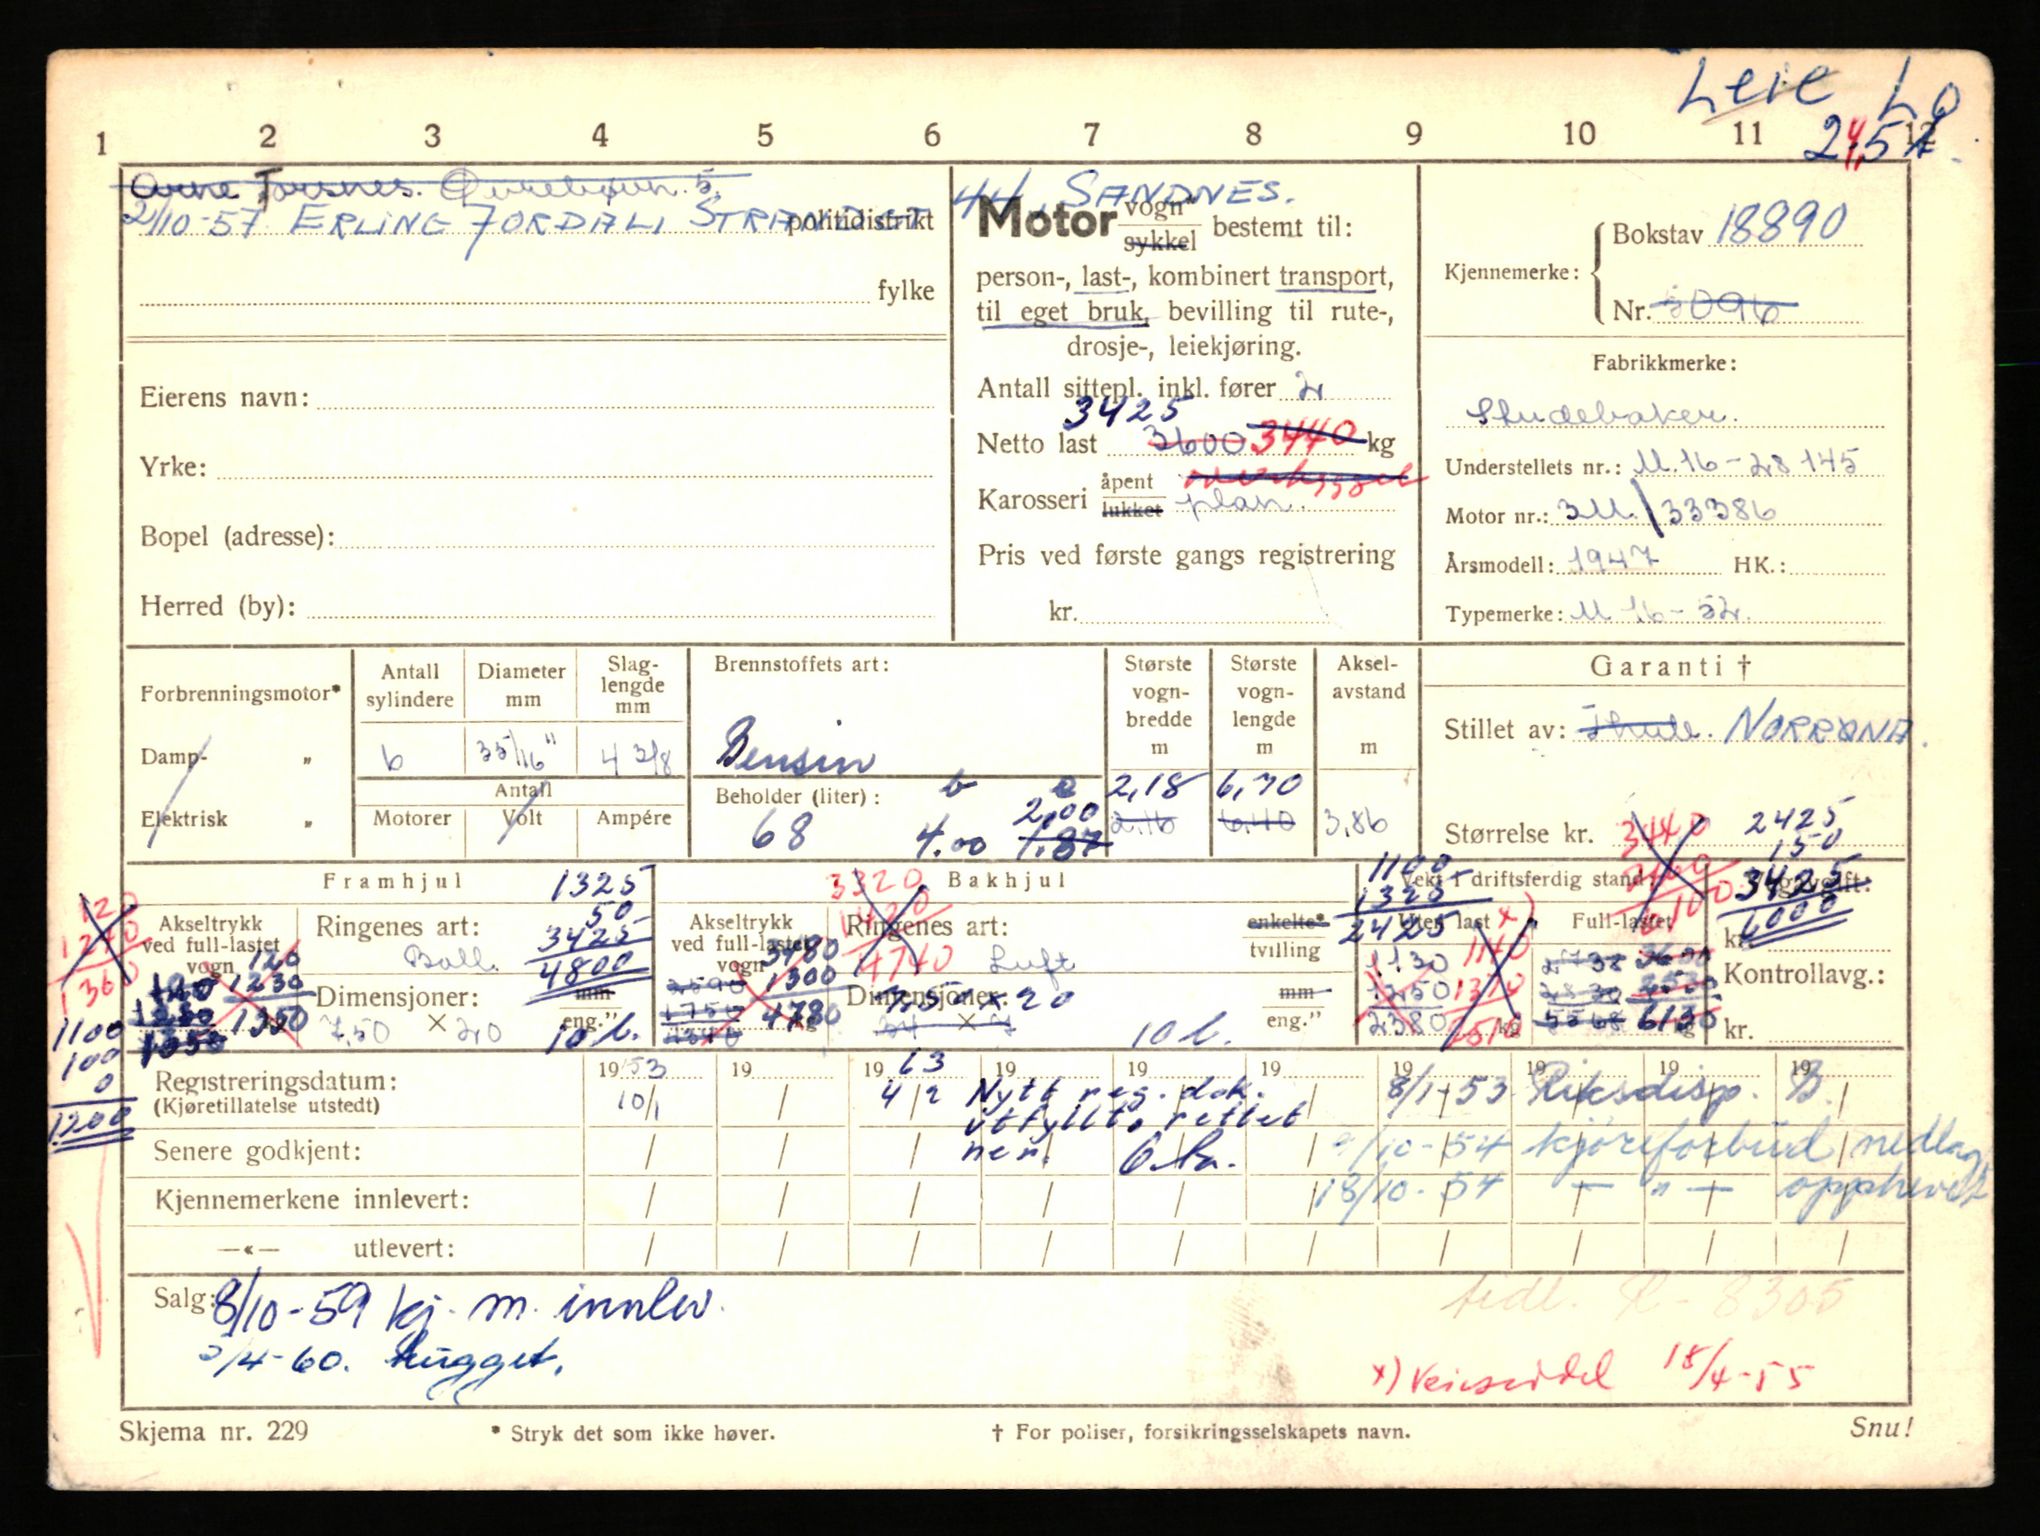 Leie Lo
1 2 3 4 5 6 7 8 9 10 11 12
Arne Torsnes.
2/10-57 ERLING FORDAL, politidistrikt
44, SANDNES.
fylke
Eierens navn:
Yrke:
Bopel (adresse):
Herred (by):
Motor vogn* sykkel bestemt til:
person-, last-, kombinert transport,
til eget bruk, bevilling til rute-,
drosje-, leiekjøring.
Antall sittepl. inkl. fører 2
3425
Netto last 3600 3440 kg
Karosseri åpent lukket plan.
Pris ved første gangs registrering
kr.
Kjennemerke: Bokstav 18890
Nr. 3096
Fabrikkmerke:
Studebaker.
Understellets nr.: M.16-28145
Motor nr.: 3M/33386
Årsmodell: 1947 HK.:
Typemerke: M 16-52.
Forbrenningsmotor*
Damp- "
Elektrisk "
Antall sylindere
6
Diameter mm
35/16"
Slag-lengde mm
4 3/8
Antall
Motorer Volt Ampére
Brennstoffets art:
Bensin
Beholder (liter):
68
4.00 2,00 1.87
Største vogn-bredde m
2,18
2,16
Største vogn-lengde m
6,70
6,40
Aksel-avstand m
3,86
Garanti †
Stillet av: Thule. NORRØNA.
Størrelse kr. 3440
2425
150
3425
6000
Framhjul
1325
50
3425
4800
Akseltrykk ved full-lastet vogn
120
1230
1350
Ringenes art:
Ball.
Dimensjoner: mm eng."
7,50 × 20 10 l.
120
1240
1360
1100
100
0
1200
Bakhjul
3320
1420
4740
Akseltrykk ved full-lastet vogn
3480
1300
4780 kg
Ringenes art: enkelte* tvilling
Luft
Dimensjoner: mm eng."
7,50 × 20
34 × 7 10 l.
Vekt i driftsferdig stand:
1100
1325
2425
Uten last x)
1130
1250
2380 kg
1140
1370
2510
Full-lastet
2738 3600
2830 2530
5568 6130 kg
kr.
Kontrollavg.:
kr.
Registreringsdatum:
(Kjøretillatelse utstedt)
1953 19 1963 19 19 19 19 19 19 19
10/1 4/2 Nytt reg. dok.
utfyllt, rettet
her.
8/1-53 Riksdisp. B.
Senere godkjent:
9/10-54 kjøreforbud nedlagt
Kjennemerkene innlevert:
18/10-54 — " — opphevet
—«— utlevert:
Salg: 8/10-59 kj. m. innlev.
/4-60. hugget.
tidl. R-8305
x) Veieseddel 18/4-55
Skjema nr. 229
* Stryk det som ikke høver.
† For poliser, forsikringsselskapets navn.
Snu!